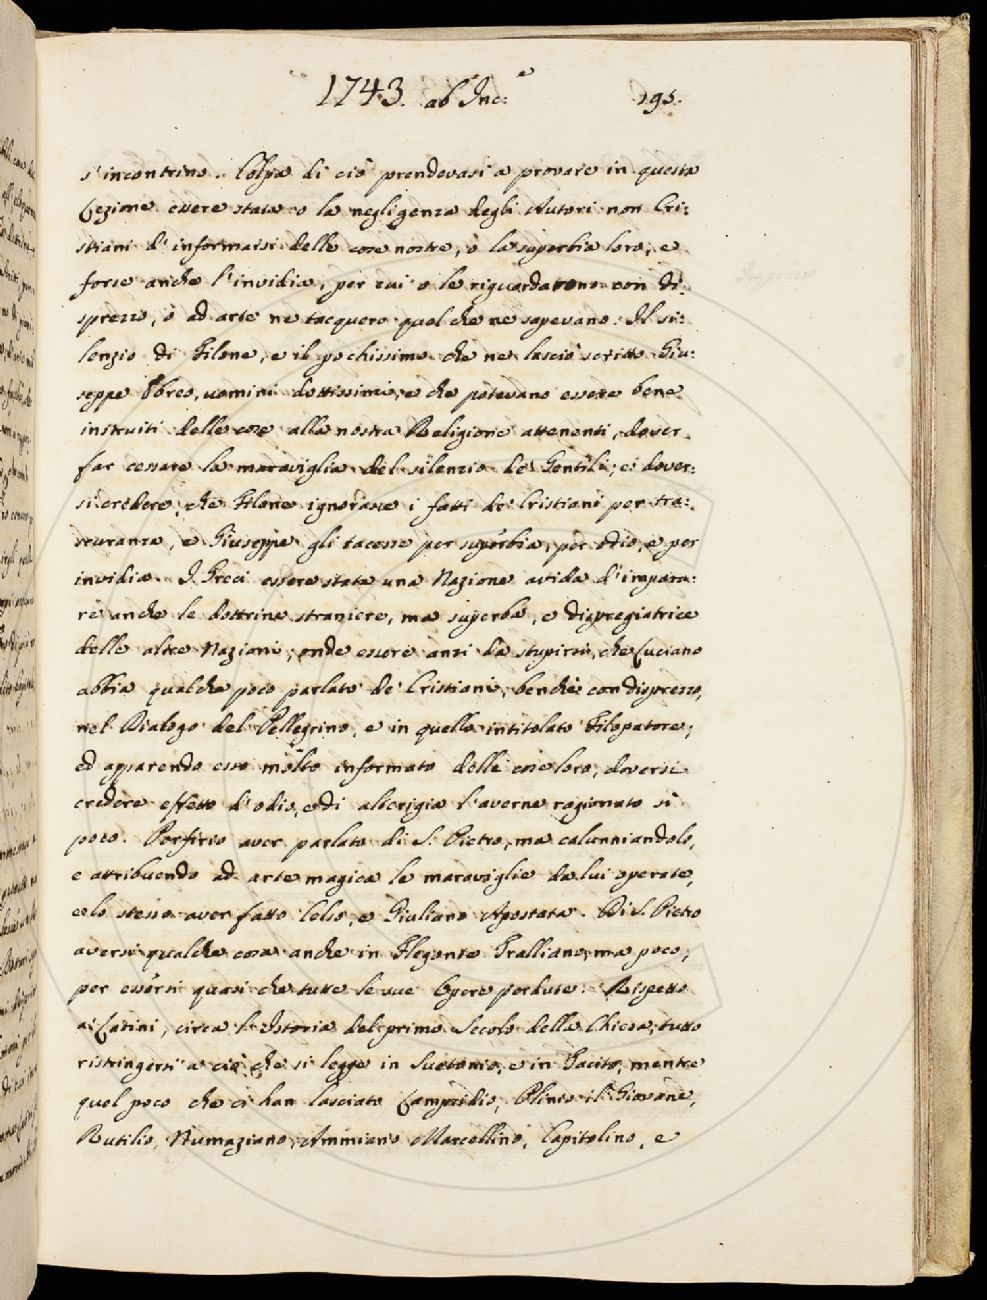 1743. ab Inc:e 195.
s'incontrino. Colpa di ciò prendevasi a provare in questa
Lezione essere stata o la negligenza degli Autori non Cri:
stiani d'informarsi delle cose nostre, o la superbia loro, e
forse anche l'invidia, per cui o le riguardarono con di:
sprezzo, o ad arte ne tacquero quel che ne sapevano. Il si:
lenzio di Filone, e il pochissimo che ne lasciò scritto Giu:
seppe Ebreo, uomini dottissimi, e che potevano essere bene
instruiti delle cose alla nostra Religione attenenti, dover
far cessare la maraviglia del silenzio de' Gentili; e dover:
si credere, che Filone ignorasse i fatti de' Cristiani per tra:
scuranza, e Giuseppe gli tacesse per superbia, per odio, e per
invidia. I Greci essere stata una Nazione avida d'impara:
re anche le dottrine straniere, ma superba, e dispregiatrice
delle altre Nazioni; onde essere anzi da stupirsi, che Luciano
abbia qualche poco parlato de' Cristiani, benchè con disprezzo,
nel Dialogo del Pellegrino, e in quello intitolato Filopatore;
ed apparendo esso molto informato delle cose loro, doversi
credere effetto d'odio, e di alterigia l'averne ragionato sì
poco. Porfirio aver parlato di S. Pietro, ma calunniandolo,
e attribuendo ad arte magica le maraviglie da lui operate,
e lo stesso aver fatto Celso, e Giuliano Apostata. Di S. Pietro
aversi qualche cosa anche in Flegonte Tralliano, ma poco,
per essersi quasi che tutte le sue Opere perdute. Rispetto
ai Latini, circa l'Istoria del primo Secolo della Chiesa, tutto
ristringersi a ciò che si legge in Suetonio, e in Tacito, mentre
quel poco che ci han lasciato Lampridio, Plinio il Giovane,
Rutilio, Numaziano, Ammiano Marcellino, Capitolino, e